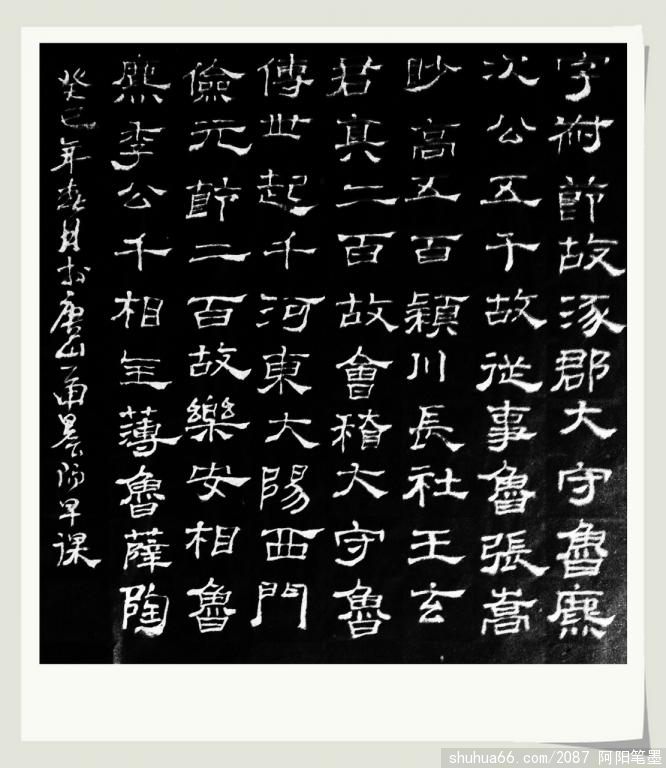 字叔節故涿郡大守魯麃
次公五千故從事魯張嵩
眇高五百穎川長社王玄
君真二百故會稽大守魯
傅世起千河東大陽西門
儉元節二百故樂安相魯
麃季公千相主薄魯薛陶
癸巳年春月於唐山一晨早課
shuhua66.com/2087 阿阳笔墨